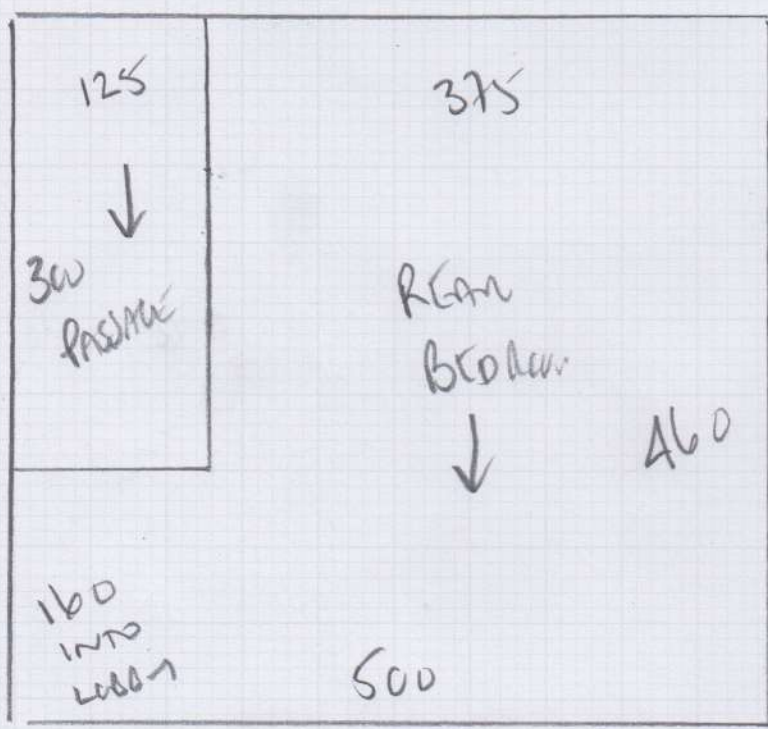 125
375
300
PASSAGE
REAR
BEDROOM
460
160
INTO
LOBBY
500